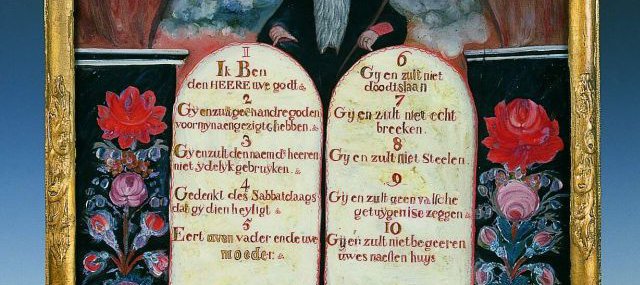 1
Ik Ben
den HEERE uwe godt
2
Gy en zult geen andre goden
voor myn aengezigt hebben.
3
Gy en zult den naem ds heeren
niet ydelyk gebruyken.
4
Gedenkt des Sabbatdaags
dat gy dien heyligt.
5
Eert uwen vader ende uwe
moeder.
6
Gy en zult niet
doodtslaan
7
Gy en zult niet echt
breeken.
8
Gy en zult niet Steelen.
9
Gy en zult geen valsche
getuygenise zeggen
10
Gy en zult niet begeeren
uwes naesten huys